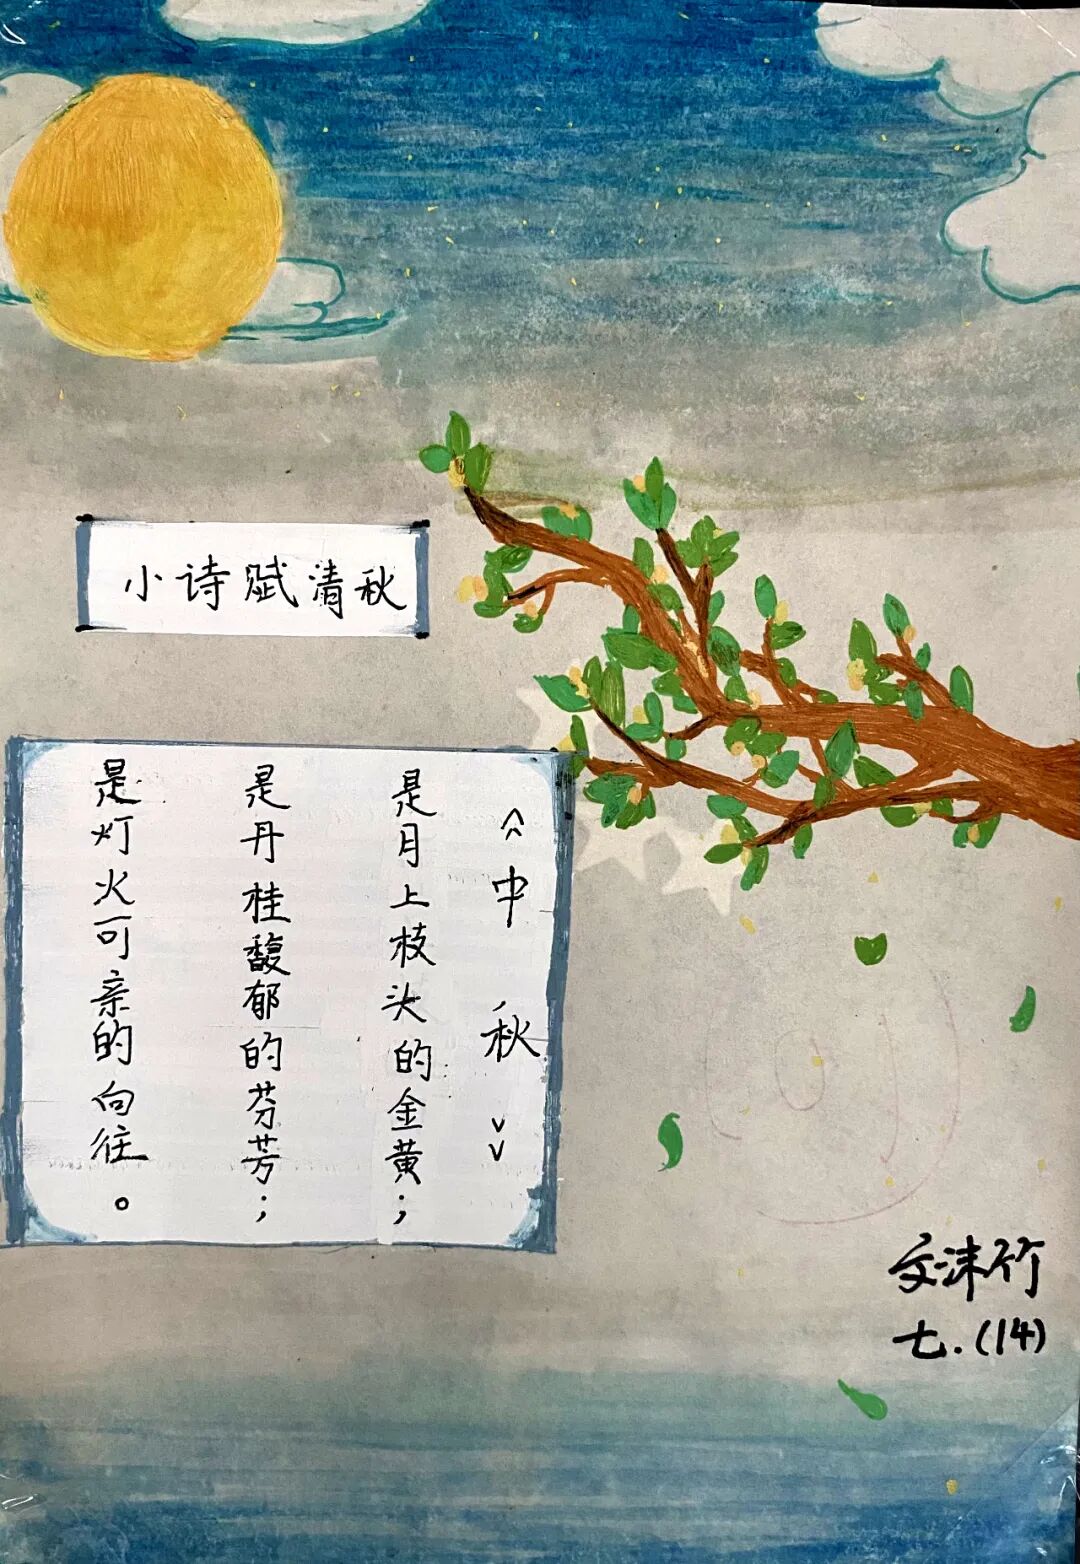 小诗赋清秋
《中秋》
是月上枝头的金黄；
是丹桂馥郁的芬芳；
是灯火可亲的向往。
文沫竹
七.(14)